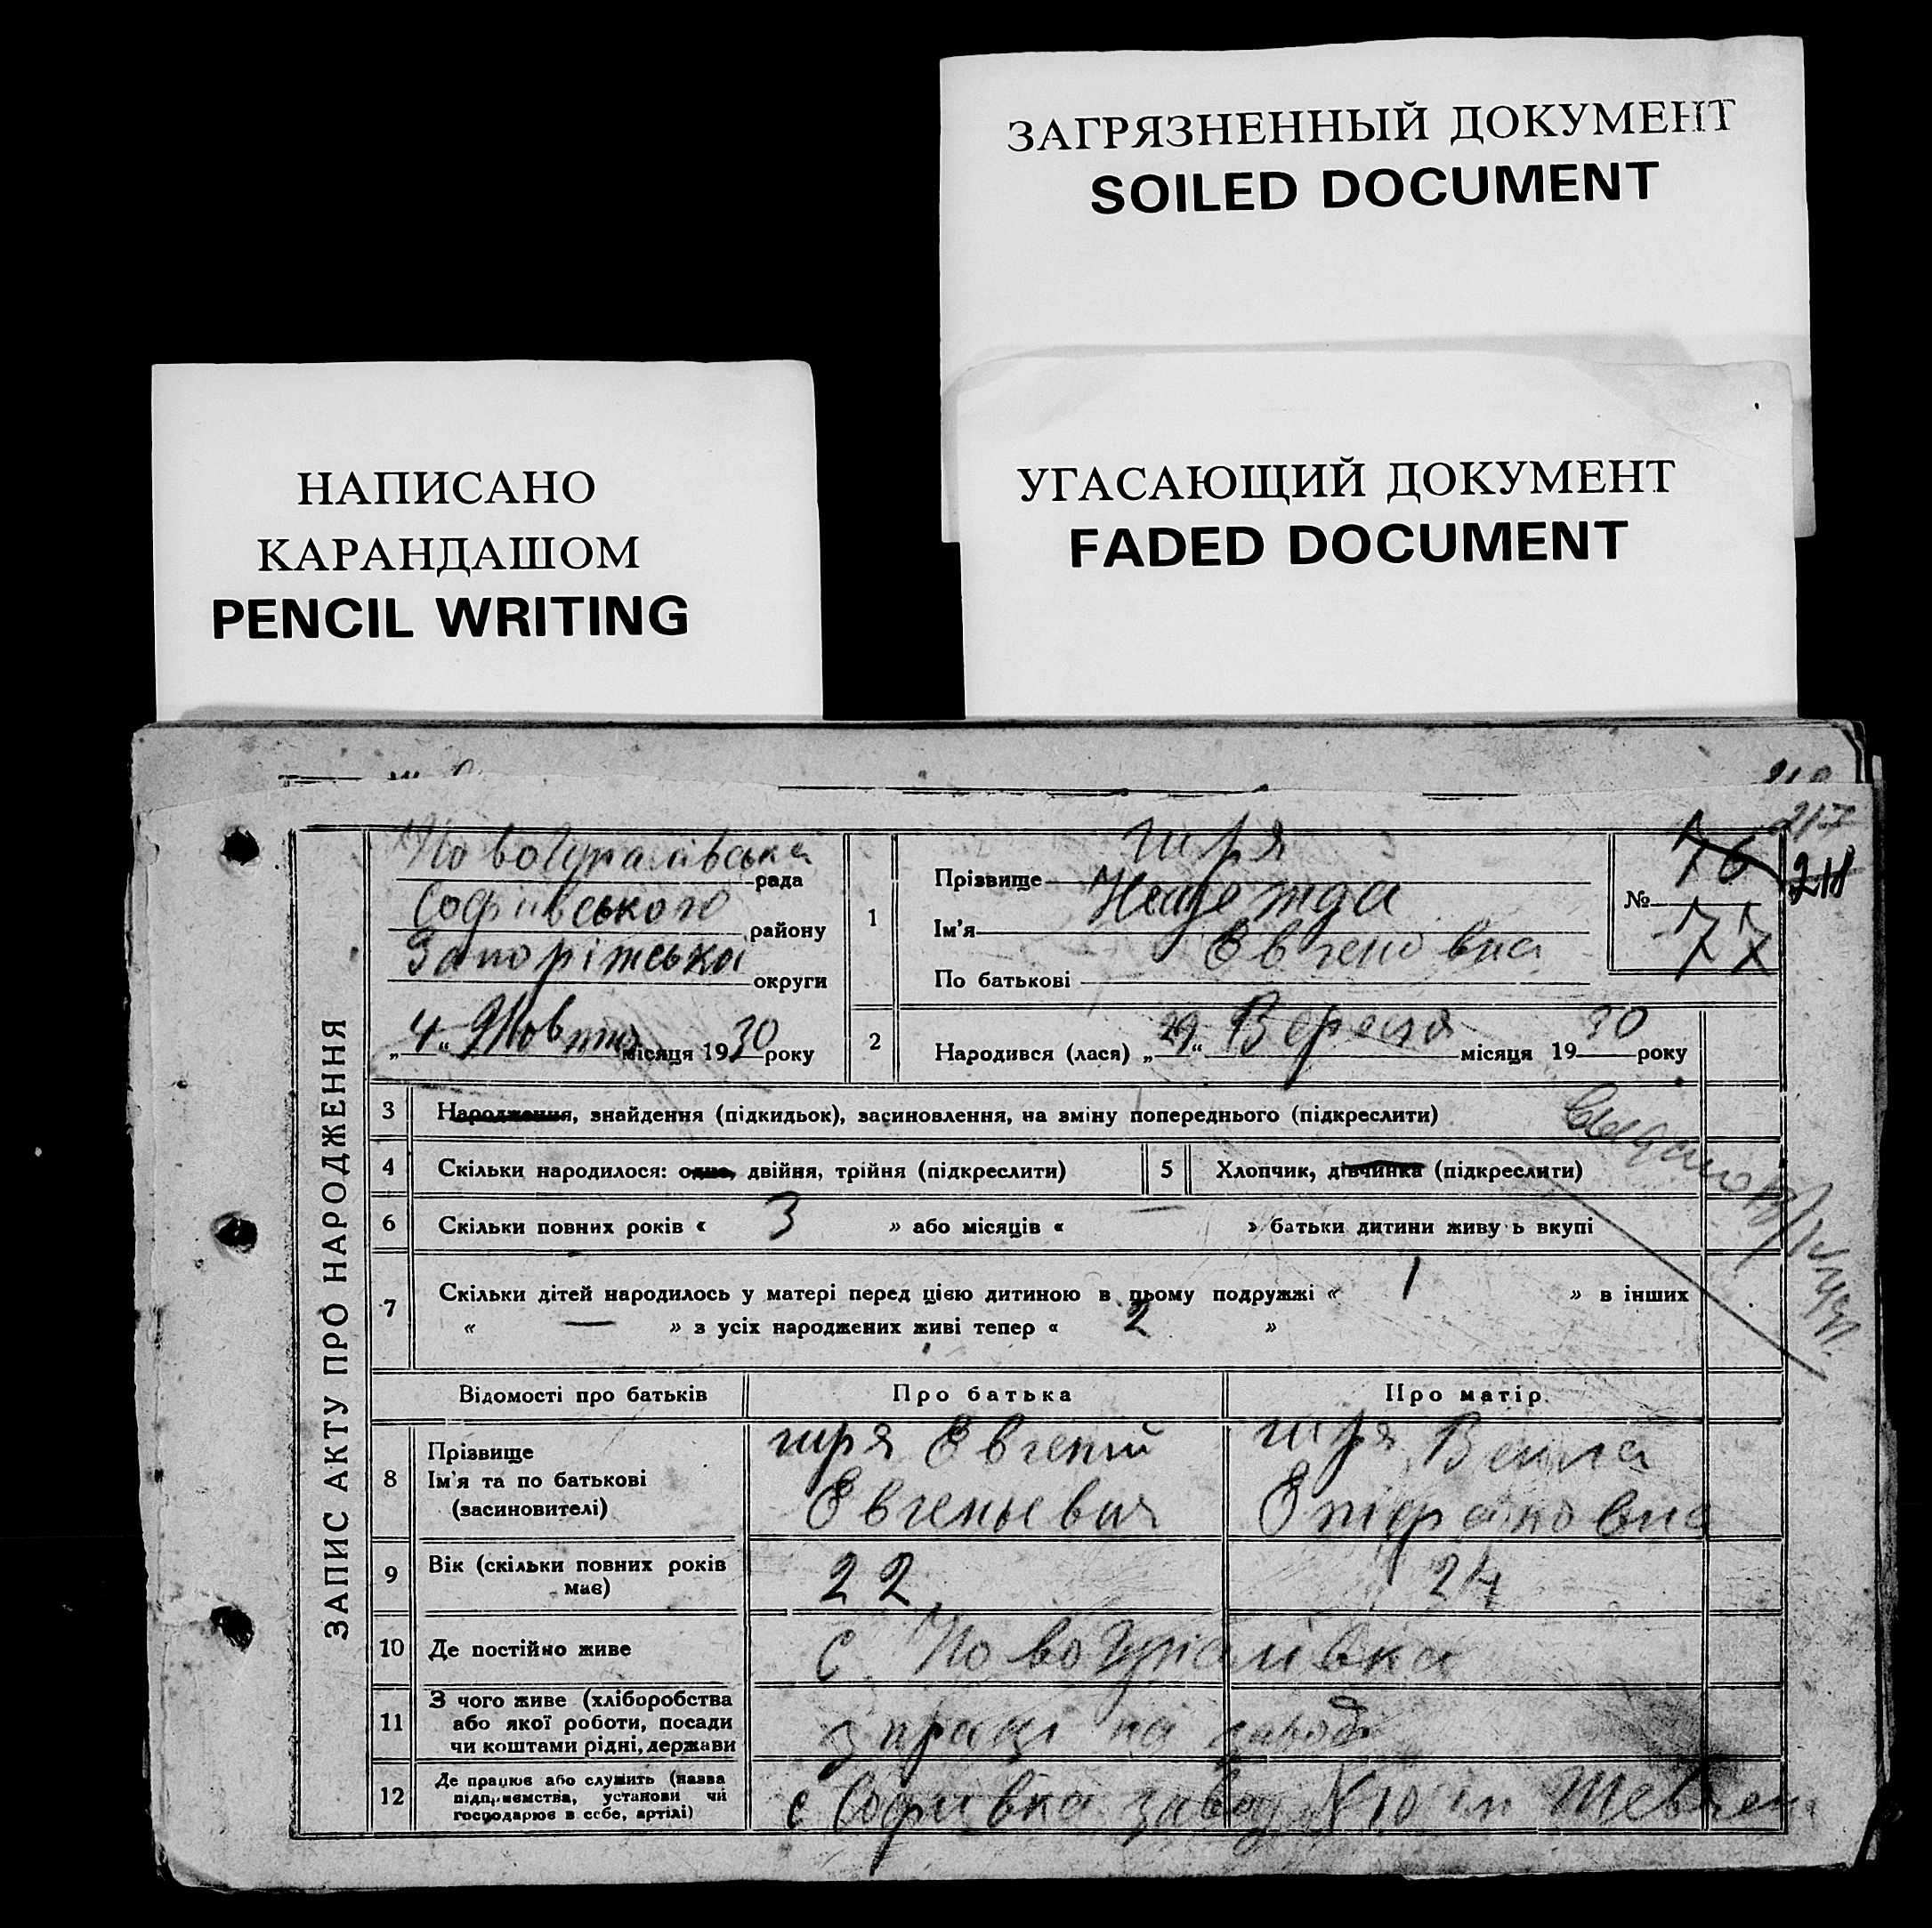 ЗАГРЯЗНЕННЫЙ ДОКУМЕНТ
SOILED DOCUMENT
НАПИСАНО
КАРАНДАШОМ
PENCIL WRITING
УГАСАЮЩИЙ ДОКУМЕНТ
FADED DOCUMENT
217
ЗАПИС АКТУ ПРО НАРОДЖЕННЯ
рада
Софіївського району
Запоріжська округи
„4“ Жовтня місяця 1930 року
1
Прізвище
Ім'я Надежда
По батькові Євгеновна
№ 76
77
2
Народився (лася) „29“ Вересня місяця 1930 року
3 Народження, знайдення (підкидьок), засиновлення, на зміну попереднього (підкреслити)
4 Скільки народилося: одно, двійня, трійня (підкреслити)
5 Хлопчик, дівчинка (підкреслити)
6 Скільки повних років « 3 » або місяців « » батьки дитини живуть вкупі
7 Скільки дітей народилось у матері перед цією дитиною в цьому подружжі « 1 » в інших
« — » з усіх народжених живі тепер « 2 »
Відомості про батьків Про батька Про матір
8 Прізвище
Ім'я та по батькові
(засиновителі)
Євгений
Євгеньевич
9 Вік (скільки повних років має) 22 24
10 Де постійно живе с.
11 З чого живе (хліборобства
або якої роботи, посади
чи коштами рідні, держави
з праці на заводі
12 Де працює або служить (назва
підприємства, установи чи
господарює в себе, артілі)
с Софіївка завод №10 ім